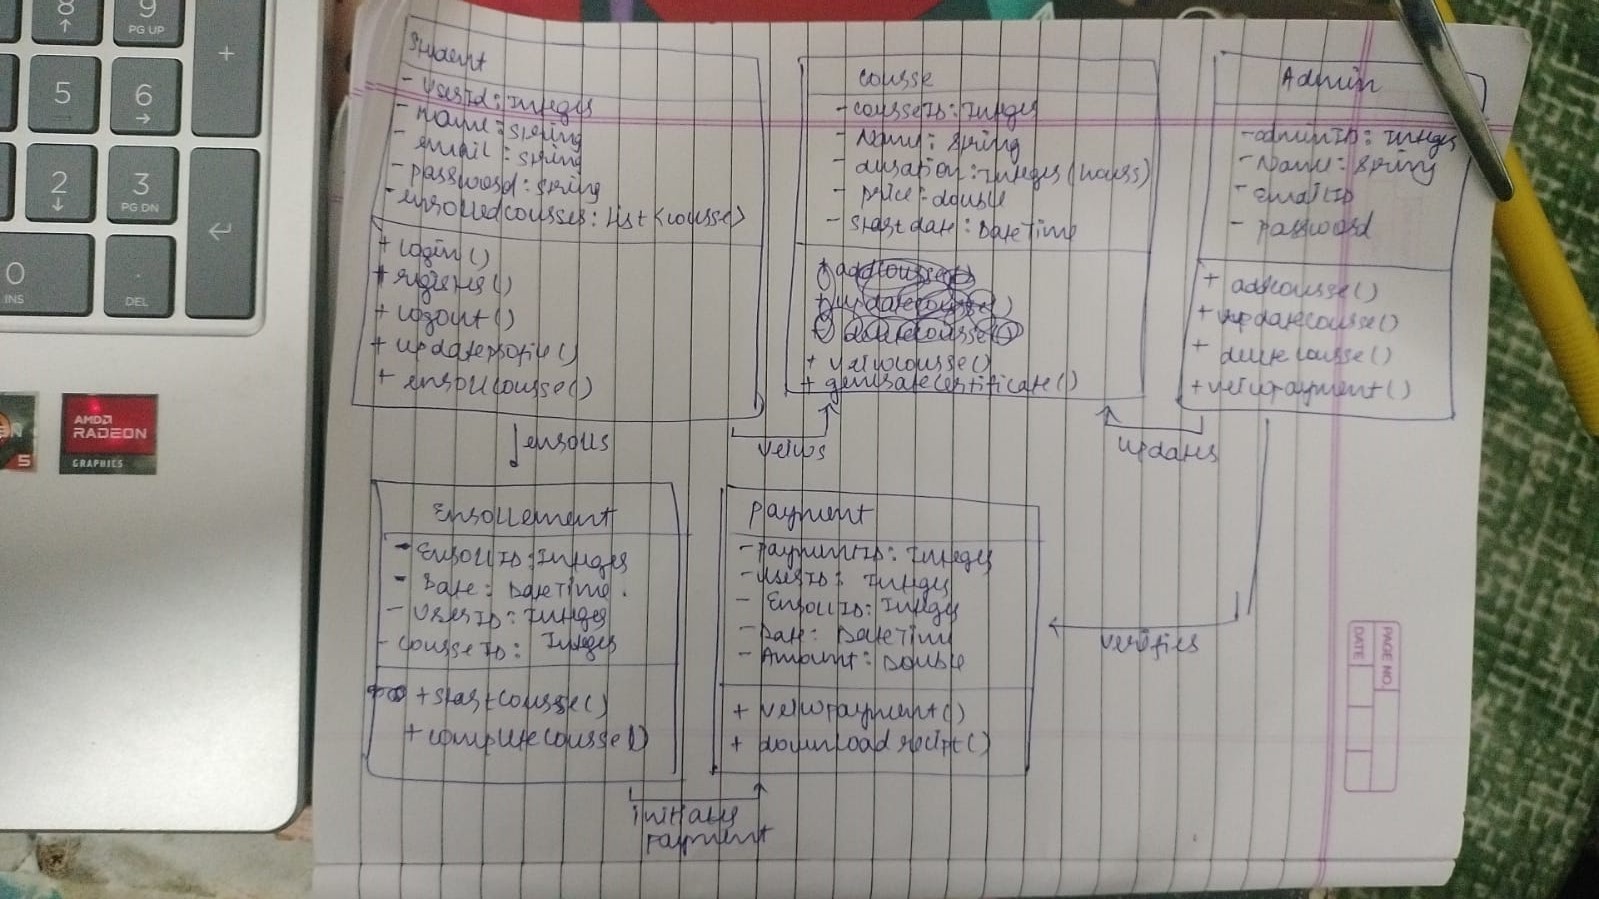 8
↑
9
PG UP
+
5
6
→
2
↓
3
PG DN
↵
0
INS
.
DEL
5
AMD
RADEON
GRAPHICS
Student
- UserId: Integer
- Name: String
- email: String
- password: String
- enrolledcourses: List<course>
+ login()
+ register()
+ logout()
+ updateprofile()
+ enrollcourse()
course
- courseID: Integer
- Name: String
- duration: Integer (hours)
- price: double
- Start date: DateTime
+ veiwcourse()
+ generatecertificate()
Admin
- adminID: Integer
- Name: String
- EmailID
- password
+ addcourse()
+ updatecourse()
+ deletecourse()
+ veiwPayment()
enrolls
veiws
updates
Enrollement
- EnrollID: Integer
- Date: DateTime
- UserID: Integer
- CourseID: Integer
+ startcourse()
+ completecourse()
payment
- PaymentID: Integer
- UserID: Integer
- EnrollID: Integer
- Date: DateTime
- Amount: Double
+ veiwPayment()
+ download recipt()
verifies
payment
PAGE NO.
DATE